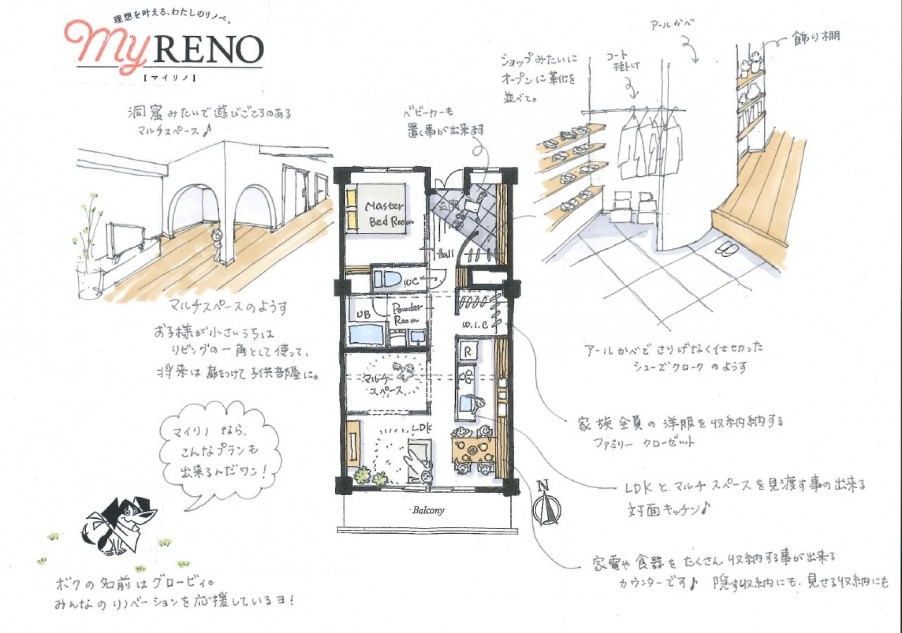 理想を叶える、わたしのリノベ。
myRENO
【マイリノ】
洞窟みたいで遊びごころのある
マルチスペース♪
マルチスペースのようす
お子様が小さいうちは
リビングの一角として使って、
将来は扉をつけて子供部屋に。
マイリノなら、
こんなプランも
出来るんだワン!
ボクの名前はグロービィ。
みんなのリノベーションを応援しているヨ!
ベビーカーも
置く事が出来ます
Master
Bed Room
玄関
Hall
WC
UB
Powder
Room
W.I.C
R
マルチ
スペース
LDK
Balcony
N
ショップみたいに
オープンに靴を
並べて。
コート
掛けて
アールかべ
飾り棚
アールかべでさりげなく仕切った
シューズクロークのようす
家族全員の洋服を収納する
ファミリークローゼット
LDKとマルチスペースを見渡す事の出来る
対面キッチン♪
家電や食器をたくさん収納する事が出来る
カウンターです♪ 隠す収納にも、見せる収納にも